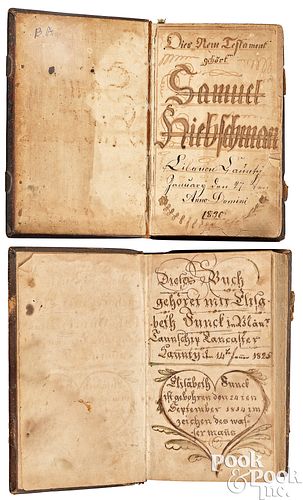 BA
Dies New Testament
gehört
Samuel
Hiebschman
Libanon Caunty
January den 27
Anno Domini
Dieses Buch
gehöret mir Elisa-
beth Funck in
Taunschip Lancaster
Caunty den 14t 1825
Elisabeth Funck
ist gebohren den 20ten
September im
zeichen des was-
sermans
POOK
& POOK
Inc.